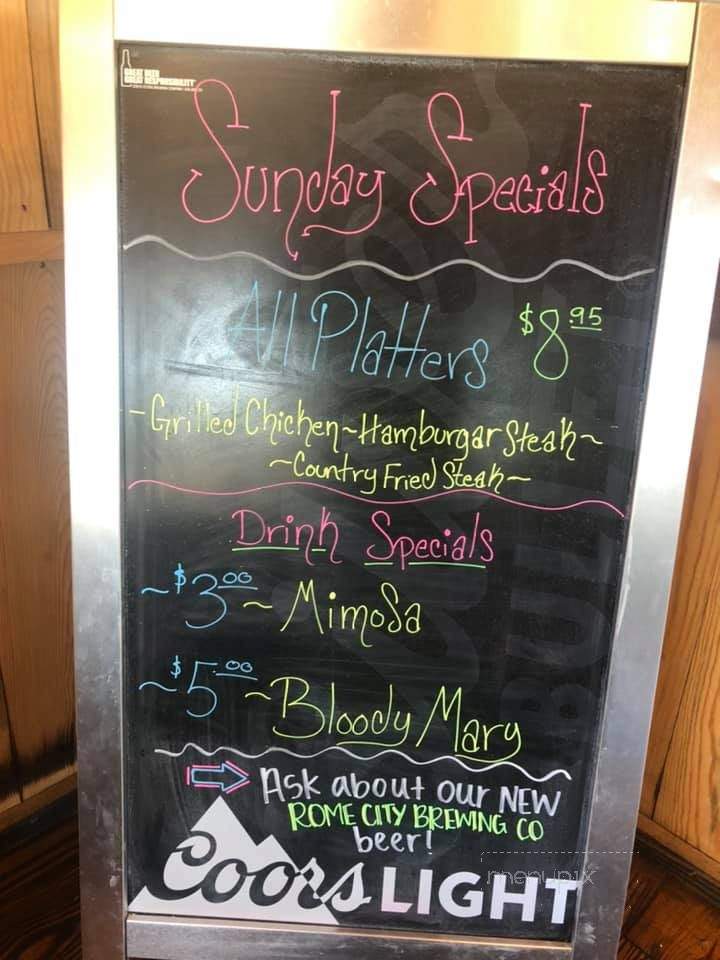 GREAT BEER
GREAT RESPONSIBILITY
Sunday Specials
All Platters $8.95
-Grilled Chicken~Hamburgar Steak~
~Country Fried Steak~
Drink Specials
~$3.00~ Mimosa
~$5.00~Bloody Mary
Ask about our NEW
ROME CITY BREWING CO
beer!
Coors LIGHT
menupix